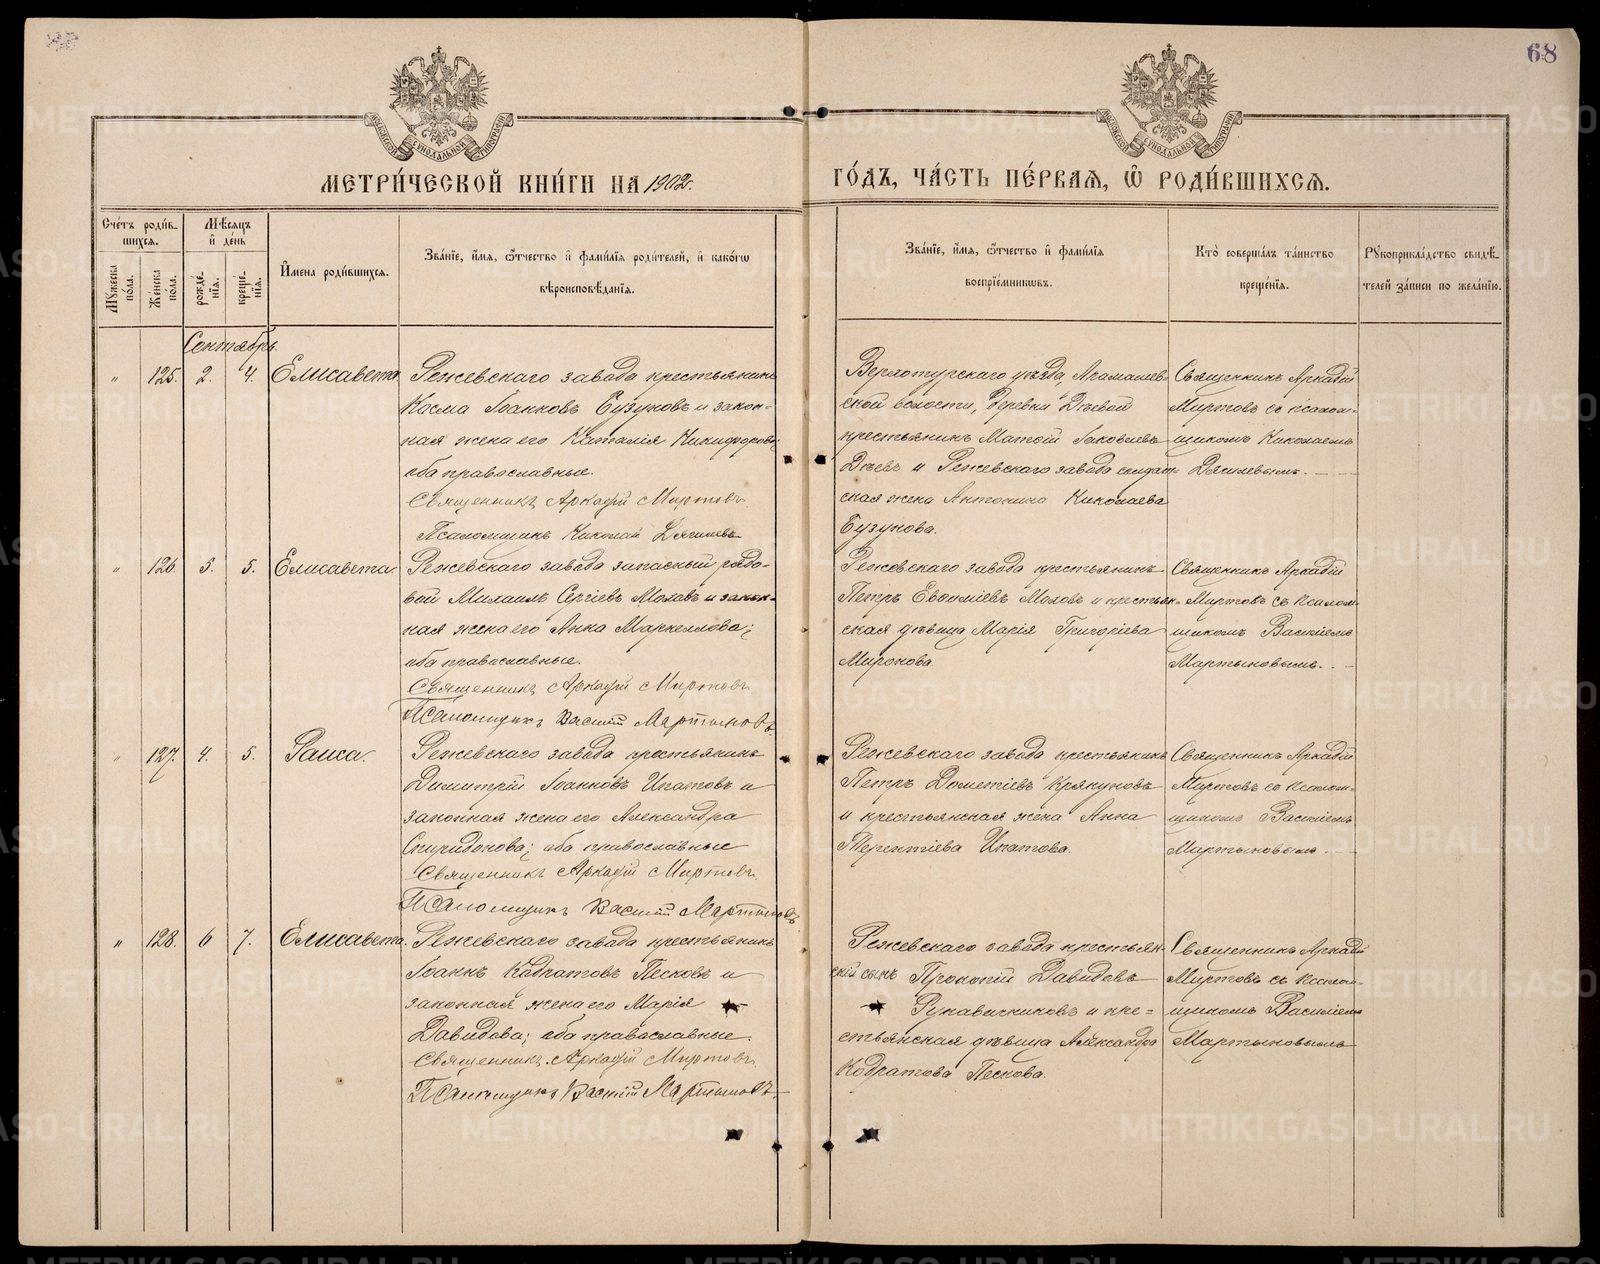 68
МЕТРИ́ЧЕСКОЙ КНИ́ГИ НА 1902.
ГО́ДЪ, ЧА́СТЬ ПЕ́РВАЯ, Ѡ РОДИ́ВШИХСЯ.
Сче́тъ роди́в-
шихся.
Мѣ́сяцъ
и де́нь
Мꙋжеска по́ла.
Же́нска по́ла.
рожде́-нїя.
креще́-нїя.
И́мена роди́вшихся.
Зва́нїе, и́мя, ѻ҆́тчество и фами́лїѧ роди́телей, и како́гѡ
вѣроисповѣ́данїѧ.
Зва́нїе, и́мя, ѻ҆́тчество и фами́лїѧ
воспрїе́мникѡвъ.
Кто̀ соверша́лъ та́инство
креще́нїѧ.
Рꙋкоприкла́дство свидѣ́-
телей за́писи по жела́нїю.
Сентябрь.
„ 125. 2. 4. Елисавета
Режевскаго завода крестьянинъ
Косма Іоанновъ Бузуновъ и закон-
ная жена его Наталія Никифорова;
оба православные.
Священникъ Аркадій Миртовъ
Псаломщикъ Николай Дягилевъ
Верхотурскаго уѣзда, Арамашев-
ской волости, деревни Дѣевой
крестьянинъ Матѳій Іаковлевъ
Дѣевъ и Режевскаго завода солдат-
ская жена Антонина Николаева
Бузунова.
Священникъ Аркадій
Миртовъ со псалом-
щикомъ Николаемъ
Дягилевымъ.
„ 126. 3. 5. Елисавета.
Режевскаго завода запасный рядо-
вой Михаилъ Сергіевъ Моховъ и закон-
ная жена его Анна Маркеллова;
оба православные.
Священникъ Аркадій Миртовъ
Псаломщикъ Василій Мартыновъ
Режевскаго завода крестьянинъ
Петръ Евѳиміевъ Моховъ и крестьян-
ская дѣвица Марія Григоріева
Миронова
Священникъ Аркадій
Миртовъ съ псалом-
щикомъ Василіемъ
Мартыновымъ.
„ 127. 4. 5. Раиса.
Режевскаго завода крестьянинъ
Димитрій Іоанновъ Ипатовъ и
законная жена его Александра
Спиридонова; оба православные
Священникъ Аркадій Миртовъ.
Псаломщикъ Василій Мартыновъ
Режевскаго завода крестьянинъ
Петръ Дометіевъ Крякуновъ
и крестьянская жена Анна
Терентіева Ипатова.
Священникъ Аркадій
Миртовъ со псалом-
щикомъ Василіемъ
Мартыновымъ
„ 128. 6 7. Елисавета.
Режевскаго завода крестьянинъ
Іоаннъ Кодратовъ Песковъ и
законная жена его Марія
Давидова; оба православные.
Священникъ Аркадій Миртовъ
Псаломщикъ Василій Мартыновъ
Режевскаго завода крестьян-
скій сынъ Прокопій Давидовъ
Рукавичниковъ и кре-
стьянская дѣвица Александра
Кодратова Пескова.
Священникъ Аркадій
Миртовъ съ псалом-
щикомъ Василіемъ
Мартыновымъ
METRIKI.GASO-URAL.RU